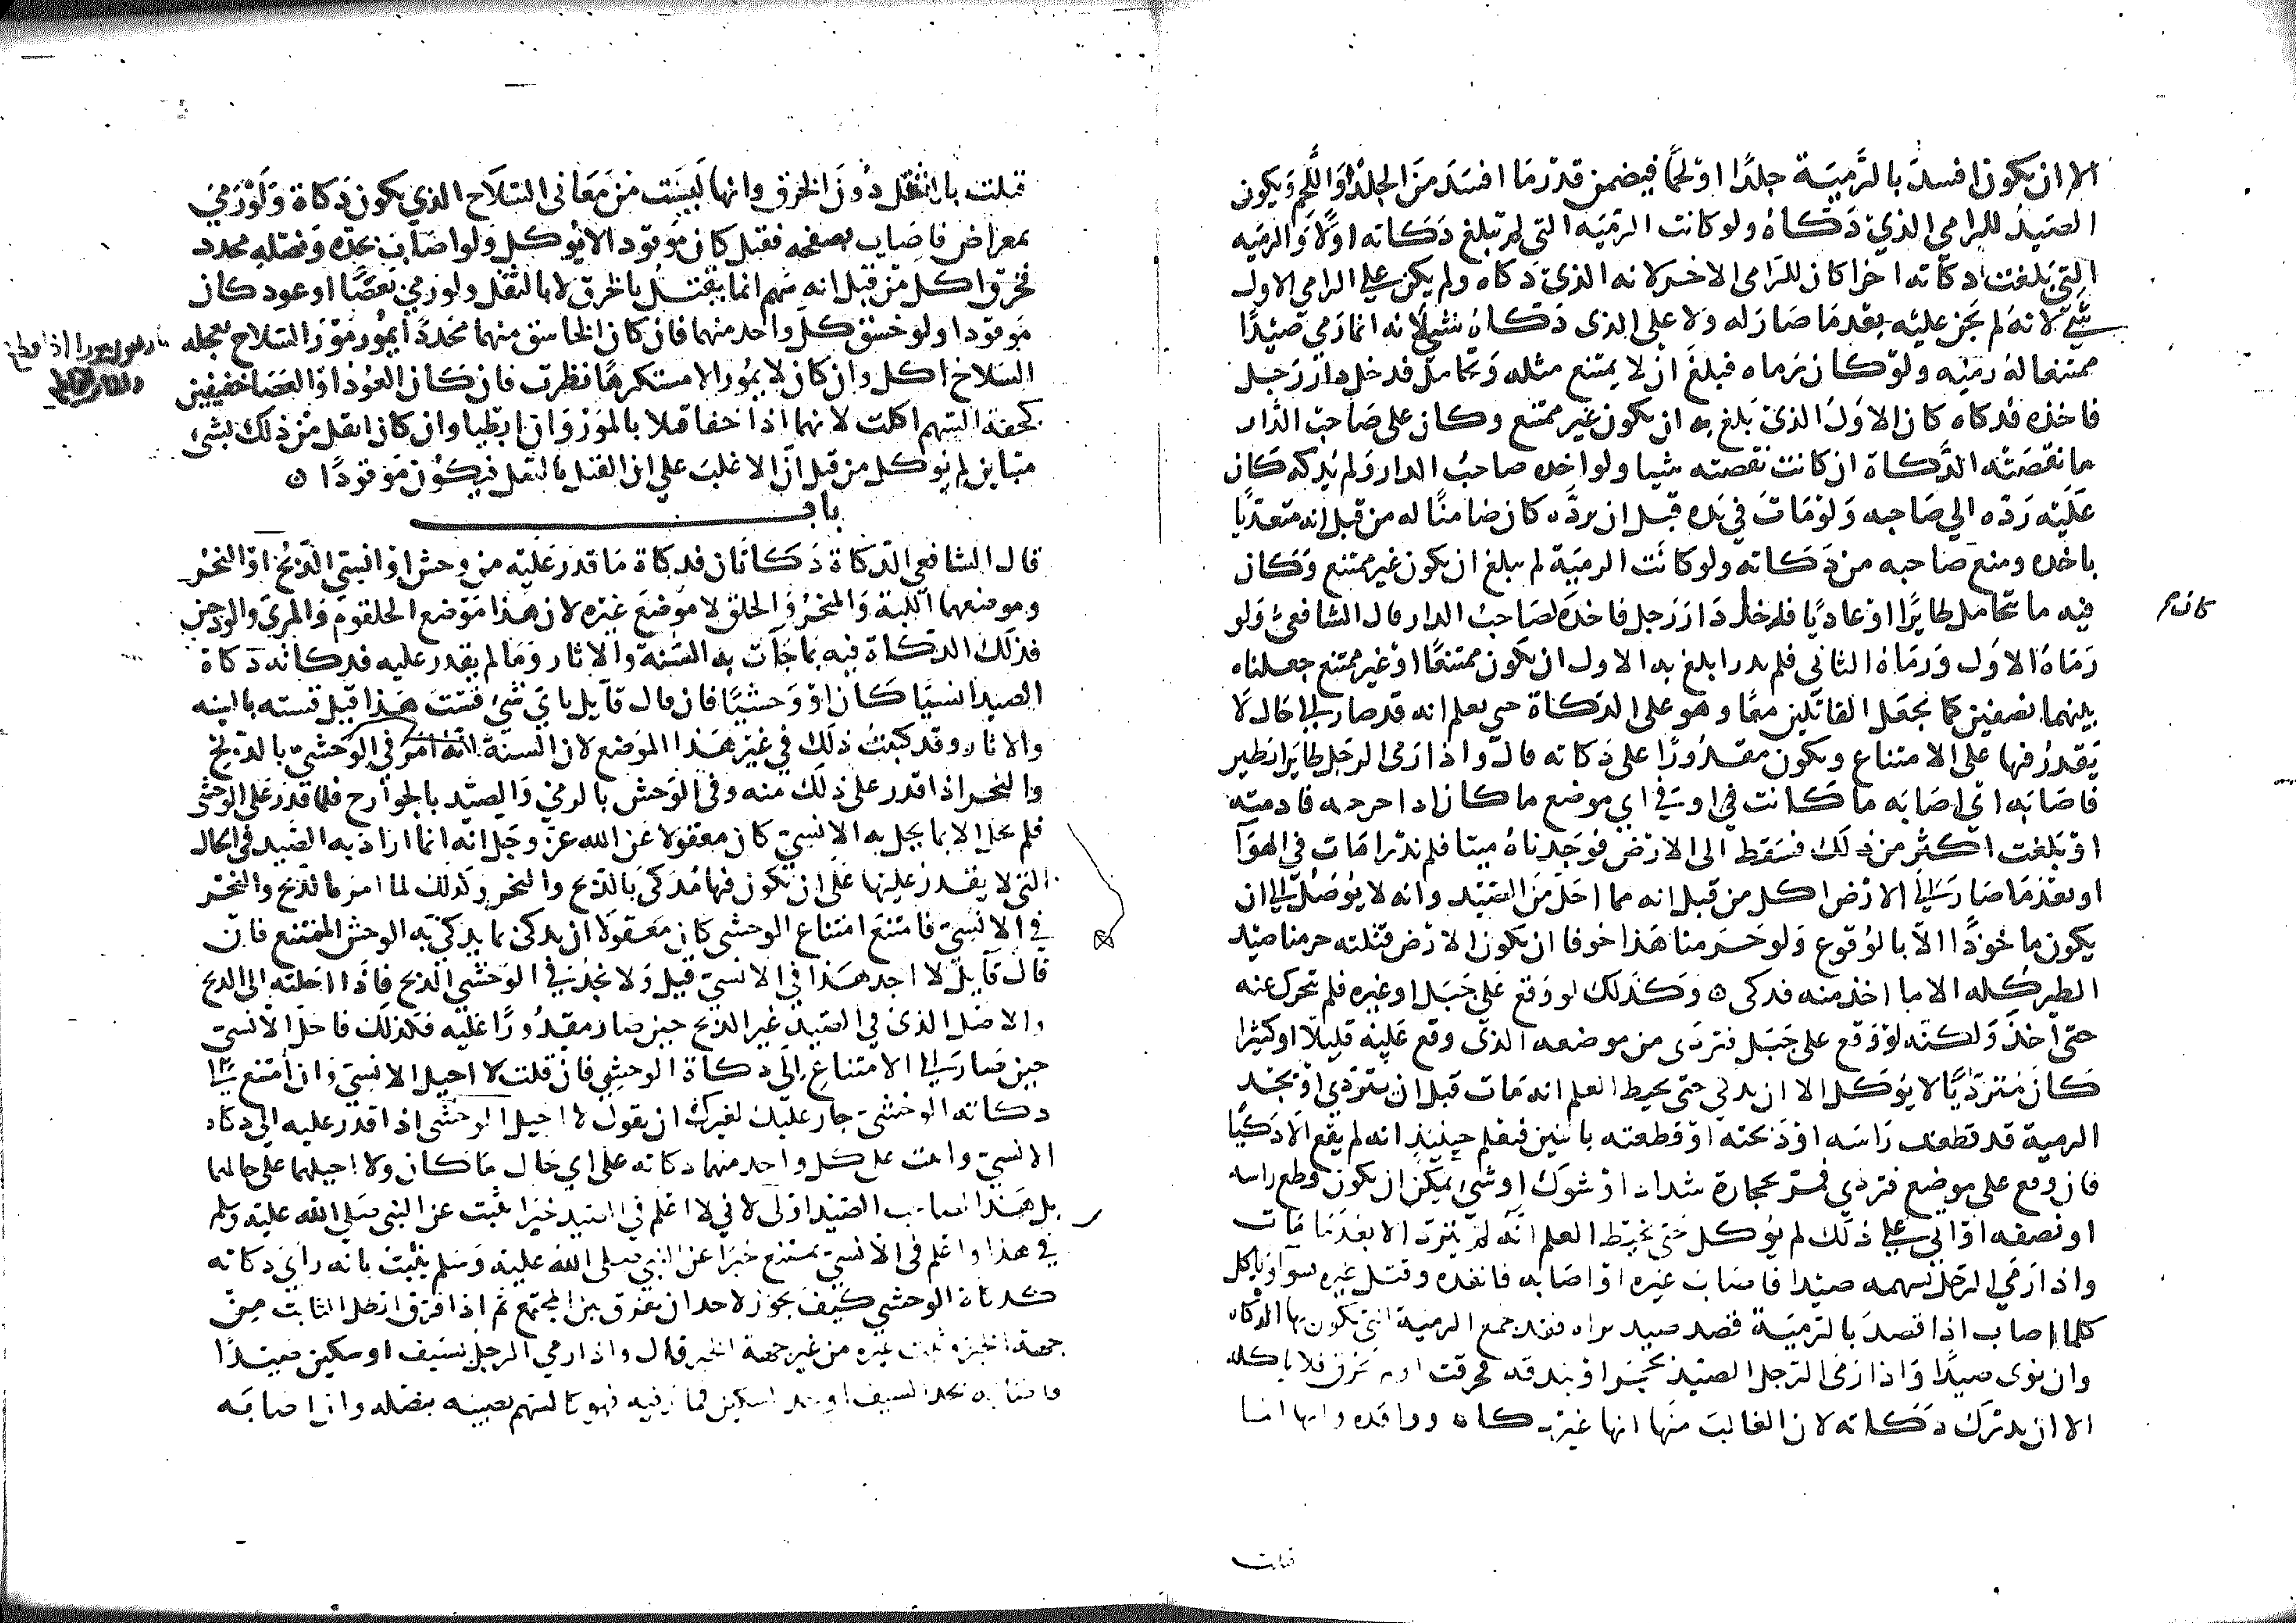 الا ان يكون افسد بالرمية جلدًا او لحمًا فيضمن قدر ما افسد من الجلد او اللحم ويكون
الصيد للرامي الذي ذكاه ولو كانت الرميه التى لم تبلغ ذكاته اولا والرميه
التي بلغت ذكاته اخرا كان للرامى الاخر لانه الذي ذكاه ولم يكن على الرامي الاول
شي لانه لم يجن عليه بعد ما صار له ولا على الذى ذكاه شي لانه انما رمى صيدًا
ممتنعا له رميه ولو كان رماه فبلغ ان لا يمتنع مثله وتحامل فدخل دار رجل
فاخذه فذكاه كان الاول الذي بلغ به ان يكون غير ممتنع وكان على صاحب الدار
ما نقصته الذكاة ان كانت نقصته شيا ولو اخذه صاحب الدار ولم يذكه كان
عليه رده الي صاحبه ولو مات في يده قبل ان يرده كان ضامنًا له من قبل انه متعديًا
باخذه ومنع صاحبه من ذكاته ولو كانت الرمية لم تبلغ ان يكون غير ممتنع وكان
فيه ما تحامل طايرًا او عاديًا فدخل دار رجل فاخذه لصاحب الدار قال الشافعي ولو
كان م
رماه الاول ورماه الثاني فلم يدر ابلغ به الاول ان يكون ممتنعًا او غير ممتنع جعلناه
بينهما نصفين كما نجعل القاتلين معًا وهو على الذكاة حتى يعلم انه قد صار الى حال لا
يقدر فيها على الامتناع ويكون مقدورًا على ذكاته قال واذا رمى الرجل طايرًا يطير
فاصابه اى اصابه ما كانت في او في اي موضع ما كان اذا جرحه فادمته
او بلغت اكثر من ذلك فسقط الى الارض فوجدناه ميتا فلم ندر امات في الهوآ
او بعد ما صار الى الارض اكل من قبل انه مما احل من الصيد وانه لا يوصل الى ان
يكون ماخوذًا الا بالوقوع ولو حرمنا هذا خوفا ان يكون الارض قتلته حرمنا صيد
الطير كله الا ما اخذ منه فذكى ه وكذلك لو وقع على جبل او غيره فلم يتحرك عنه
حتى اخذ ولكنه لو وقع على جبل فتردى من موضعه الذى وقع عليه قليلا او كثيرا
كان مترديًا لا يؤكل الا ان يدكي حتى يحيط العلم انه مات قبل ان يتردي او تجد
الرمية قد قطعت راسه او ذبحته او قطعته باثنين فيعلم حينيذ انه لم يقع الا ذكيًا
فان وقع على موضع فتردي فمر بحجارة شداد او شوك او شي يمكن ان يكون قطع راسه
او نصفه او اتى على ذلك لم يؤكل حتى يحيط العلم انه لم يترد الا بعد ما مات
واذا رمي الرجل بسهمه صيدا فاصاب غيره او اصابه فانفده وقتل غيره سوا وياكل
كلما اصاب اذا قصد بالرمية قصد صيد يراه فقد جمع الرمية التي تكون بها الذكاه
وان نوى صيدًا واذا رمى الرجل الصيد بحجر او بندقه فخرقت او لم تخرق فلا ياكله
الا ان يدرك ذكاته لان الغالب منها انها غير ذكاه وواقذه وانها انما
قتلت
قتلت بالثقل دون الخرق وانها ليست من معاني السلاح الذي يكون ذكاة ولو رمي
بمعراض فاصاب بصفحه فقتل كان موقوذا لا يؤكل ولو اصاب بحده ونصله محدد
فخرق اكل من قبل انه سهم انما يقتل بالخرق لا بالثقل ولو رمي بعصًا او عود كان
موقوذا ولو خسق كل واحد منهما فان كان الخاسق منهما محددًا يمور مور السلاح بعجله
السلاح اكل وان كان لا يمور الا مستكرهًا نظرت فان كان العود او العصا خفيفين
كخفة السهم اكلت لانهما اذا خفا قتلا بالمور وان ابطيا وان كان اثقل من ذلك بشئ
متباين لم يوكل من قبل ان الاغلب على ان القتل بالثقل فيكون موقوذًا ه
باب
قال الشافعي الذكاة ذكاتان فذكاة ما قدر عليه من وحشي او انسي الذبح او النحر
وموضعهما اللبة والمنحر والحلق لا موضع غيره لان هذا موضع الحلقوم والمرى والودجين
فذلك الذكاة فيه بما جآت به السنة والاثار وما لم يقدر عليه فذكاته ذكاة
الصيد انسيًا كان او وحشيًا فان قال قآيل باي شئ قست هذا قيل قسته بالسنه
والاثار وقد كتبت ذلك في غير هذا الموضع لان السنة انه امر في الوحشي بالذبح
والنحر اذا قدر على ذلك منه وفى الوحش بالرمي والصيد بالجوارح فلما قدر على الوحشى
فلم يحل الا بما يحل به الانسي كان معقولا عن الله عز وجل انه انما اراد به الصيد في الحال
التى لا يقدر عليها على ان يكون فيها مذكى بالذبح والنحر وكذلك لما امر بالذبح والنحر
في الانسي فامتنع امتناع الوحشى كان معقولا ان يذكى بما يذكى به الوحش الممتنع فان
قال قآيل لا اجد هذا في الانسي قيل ولا نجد في الوحشي الذبح فاذا احلته الى الذبح
والاصل الذي في الصيد غير الذبح حين صار مقدورًا عليه فكذلك فاحل الانسي
حين صار الى الامتناع الى ذكاة الوحشي فان قلت لا احيل الانسي وان امتنع الى
ذكاته الوحشى جاز عليك لغيرك ان يقول لا احيل الوحشى اذا قدر عليه الى ذكاه
الانسي واثبت على كل واحد منهما ذكاته على اي حال ما كان ولا احيلهما على حالهما
بل هذا لصاحب الصيد اولى لاني لا اعلم في الصيد خبرا يثبت عن النبى صلى الله عليه وسلم
في هذا واعلم في الانسي يمتنع خبرًا عن النبي صلى الله عليه وسلم يثبت بانه رأى ذكاته
كذكاة الوحشي كيف يجوز لاحد ان يفرق بين المجتمع ثم اذا فرق ابطل الثابت من
جهة الخبر وثبت غيره من غير جهة الخبر قال واذا رمي الرجل بسيف او سكين صيدًا
فاصابه بحد السيف او حد السكين فمار فيه فهو كالسهم يصيبه بنصله وان اصابه